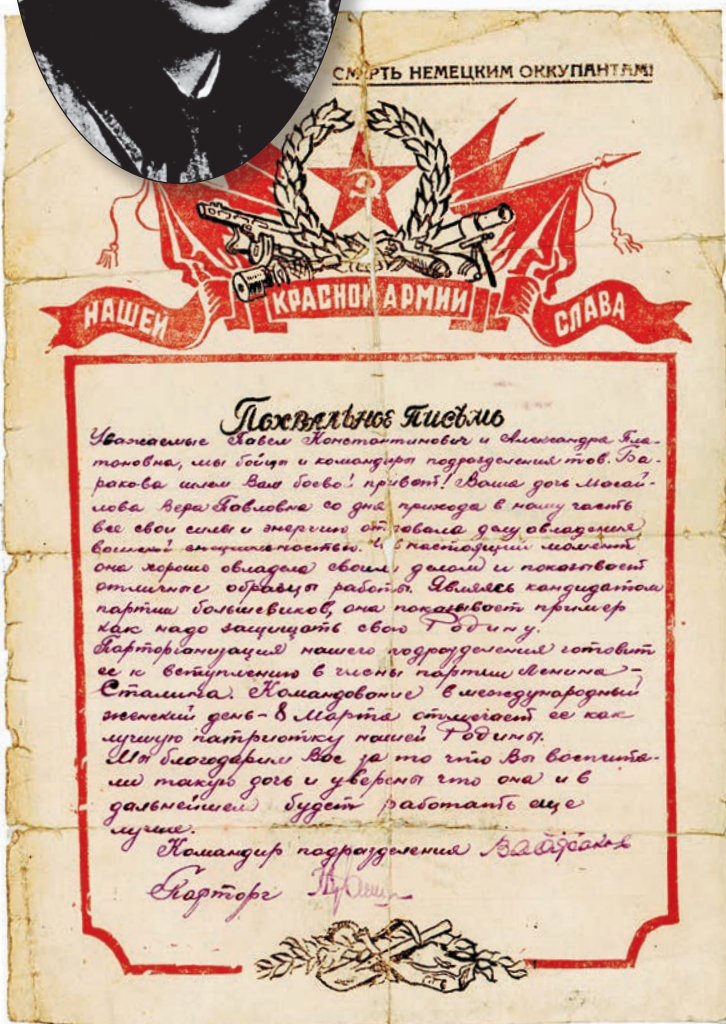 СМЕРТЬ НЕМЕЦКИМ ОККУПАНТАМ!
НАШЕЙ КРАСНОЙ АРМИИ СЛАВА
Похвальное письмо
Уважаемые Павел Константинович и Александра Пла-
тоновна, мы бойцы и командиры подразделения тов. Ба-
ракова шлем Вам боевой привет! Ваша дочь
Вера Павловна со дня прихода в нашу часть
все свои силы и энергию отдавала делу овладения
военной специальностью. И в настоящий момент
она хорошо овладела своим делом и показывает
отличные образцы работы. Являясь кандидатом
партии большевиков, она показывает пример
как надо защищать свою Родину.
Парторганизация нашего подразделения готовит
ее к вступлению в члены партии Ленина-
Сталина. Командование в международный
женский день - 8 Марта отмечает ее как
лучшую патриотку нашей Родины.
Мы благодарим Вас за то что Вы воспита-
ли такую дочь и уверены что она и в
дальнейшем будет работать еще
лучше.
Командир подразделения
Парторг